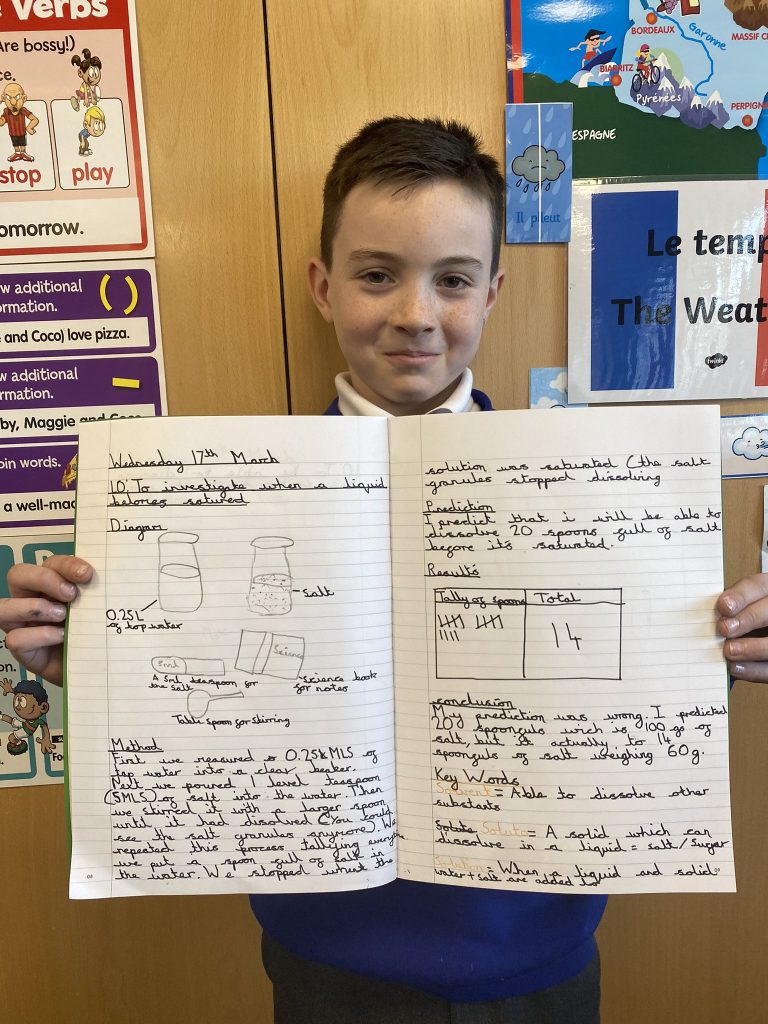 e Verbs
(Are bossy!)
ce.
stop
play
omorrow.
w additional
ormation.
( )
e and Coco) love pizza.
w additional
ormation.
by, Maggie and Coco
oin words.
a well-mad
BORDEAUX
Garonne
MASSIF C
BIARRITZ
Pyrénées
PERPIGN
ESPAGNE
Il pleut
Le temp
The Weat
twinkl
Wednesday 17th March
10; To investigate when a liquid
belones satured
Diagram
0.25L
of tap water
Salt
5ml
A 5ml teaspoon for
the salt
Science
Science book
for notes
Table spoon for stirring
Method
First we measured 0.25 MLS of
tap water into a clear beaker.
Next we poured 1 level teaspoon
(5MLS) of salt into the water. Then
we stirred it with a larger spoon
until it had dissolved (You could
see the salt granules anymore). We
repeated this process tallying everytime
we put a spoon full of salt in
the water. We stopped when the
solution was saturated (the salt
granules stopped dissolving
Prediction
I predict that i will be able to
dissolve 20 spoons full of salt
before it's saturated.
Results
Tally of spoons
Total
14
conclusion
My prediction was wrong. I predicted
20 spoonfuls wich is 100 gs of
salt, but it actually to 14
spoonfuls of salt weighing 60g.
Key Words
Solvent = Able to dissolve other
substants
Solute Solute = A solid which can
dissolve in a liquid = salt/sugar
Solution = When a liquid and solid
water + salt are added to